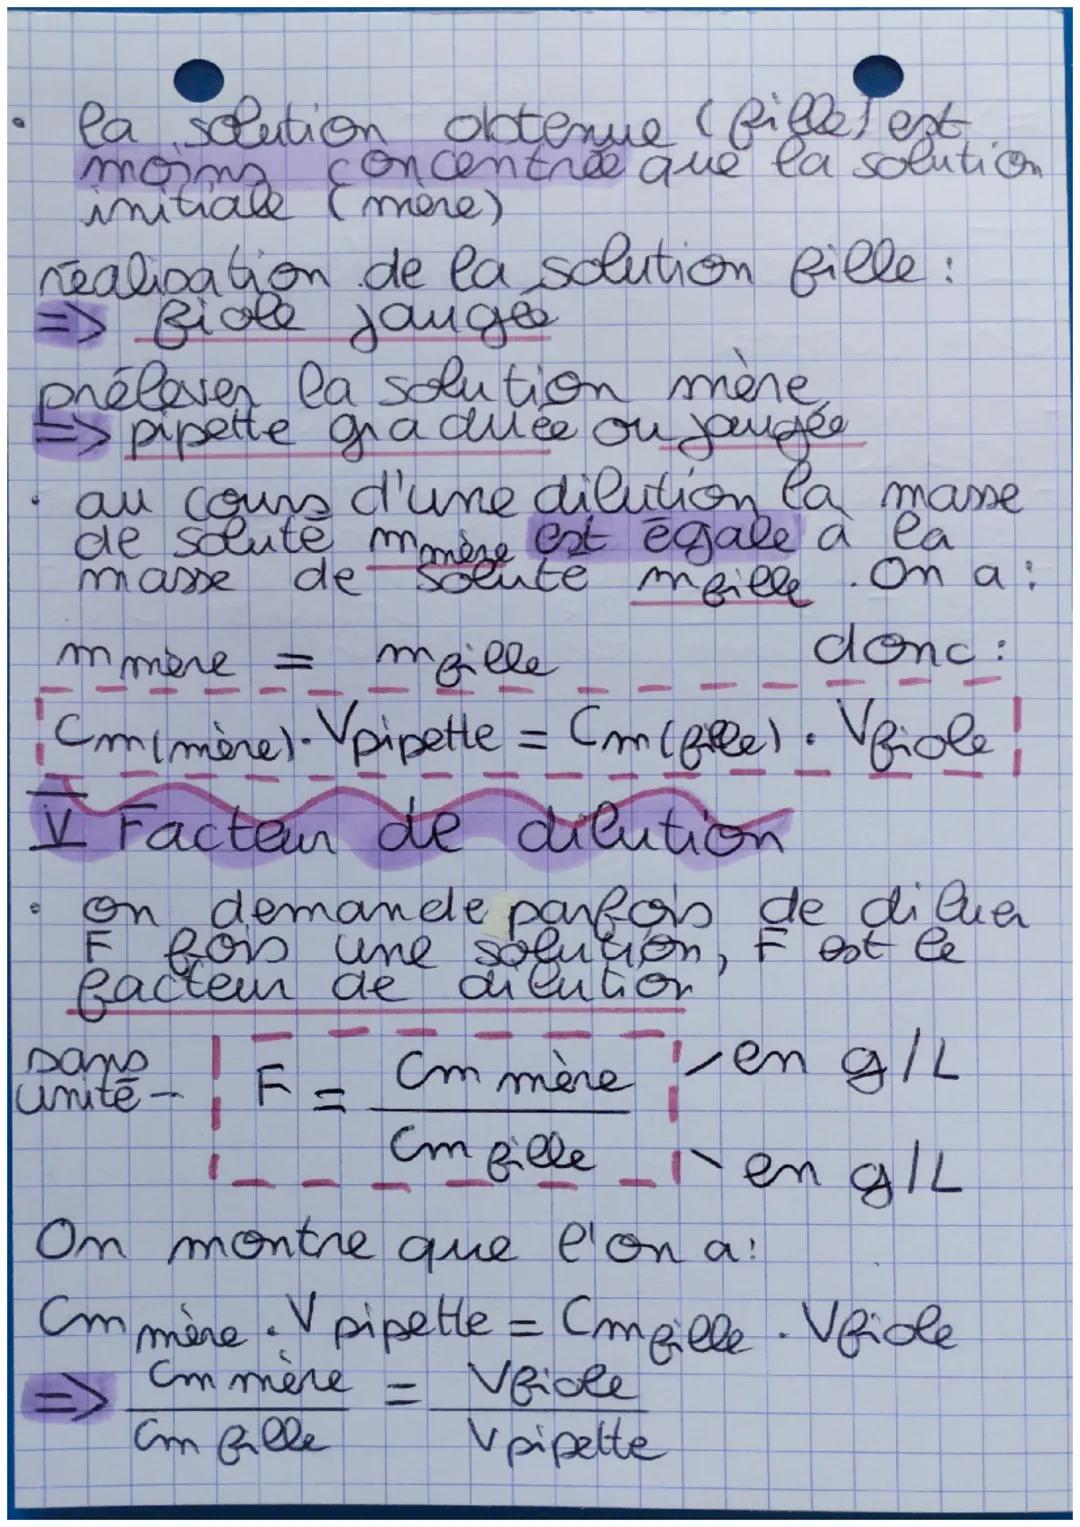 • la solution obtenue (fille) est
moins concentrée que la solution
initiale (mère)
réalisation de la solution fille :
=> fiole jaugée
prélever la solution mère
=> pipette graduée ou jaugée
• au cours d'une dilution la masse
de soluté m mère est égale à la
masse de soluté m fille. On a :
m mère = m fille donc :
Cm(mère) · Vpipette = Cm(fille) · Vfiole
V Facteur de dilution
• on demande parfois de diluer
F fois une solution, F est le
facteur de dilution
sans unité - F = Cm mère / Cm fille
- en g/L
- en g/L
On montre que l'on a :
Cm mère · V pipette = Cm fille · Vfiole
=> Cm mère / Cm fille = Vfiole / Vpipette